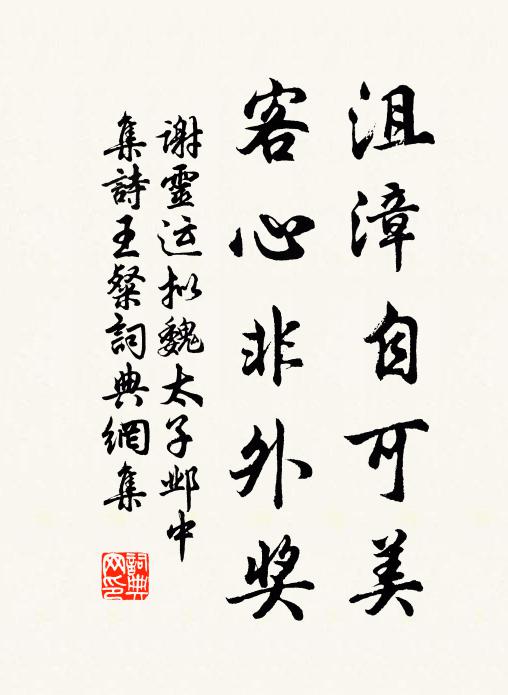 沮漳自可美
客心非外奖
谢靈运拟魏太子邺中
集詩王粲詞典網集
詞典网印